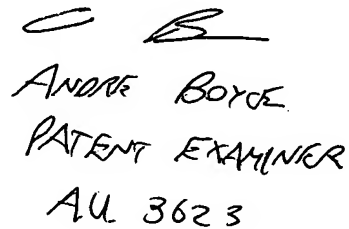 ANDRE BOYCE
PATENT EXAMINER
AU 3623